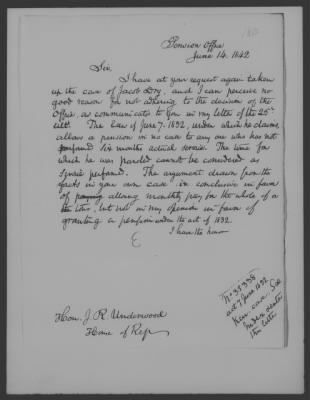 Pension Office
June 14, 1842
Sir,
I have at your request again taken
up the case of Jacob Dry, and I can perceive no
good reason for not adhering to the decision of the
Office, as communicated to you in my letter of the 25th
ult. The law of June 7. 1832, under which he claims,
allows a pension in no case to any one who has not
six months actual service. The time for
which he was paroled cannot be considered as
service performed. The argument drawn from the
facts in your own case is conclusive in favor
of paying allowing monthly pay for the whole of a
tour, but not in my opinion in favor of
granting a pension under the act of 1832.
I have the honor
Hon. J. R. Underwood
House of Rep
No 35338
act 7 June 1832
Ken case See
Index Cards